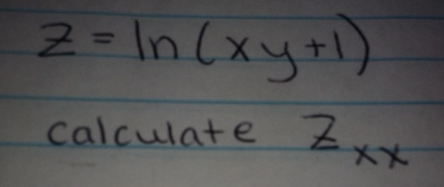 z = ln(xy+1)
calculate z_xx